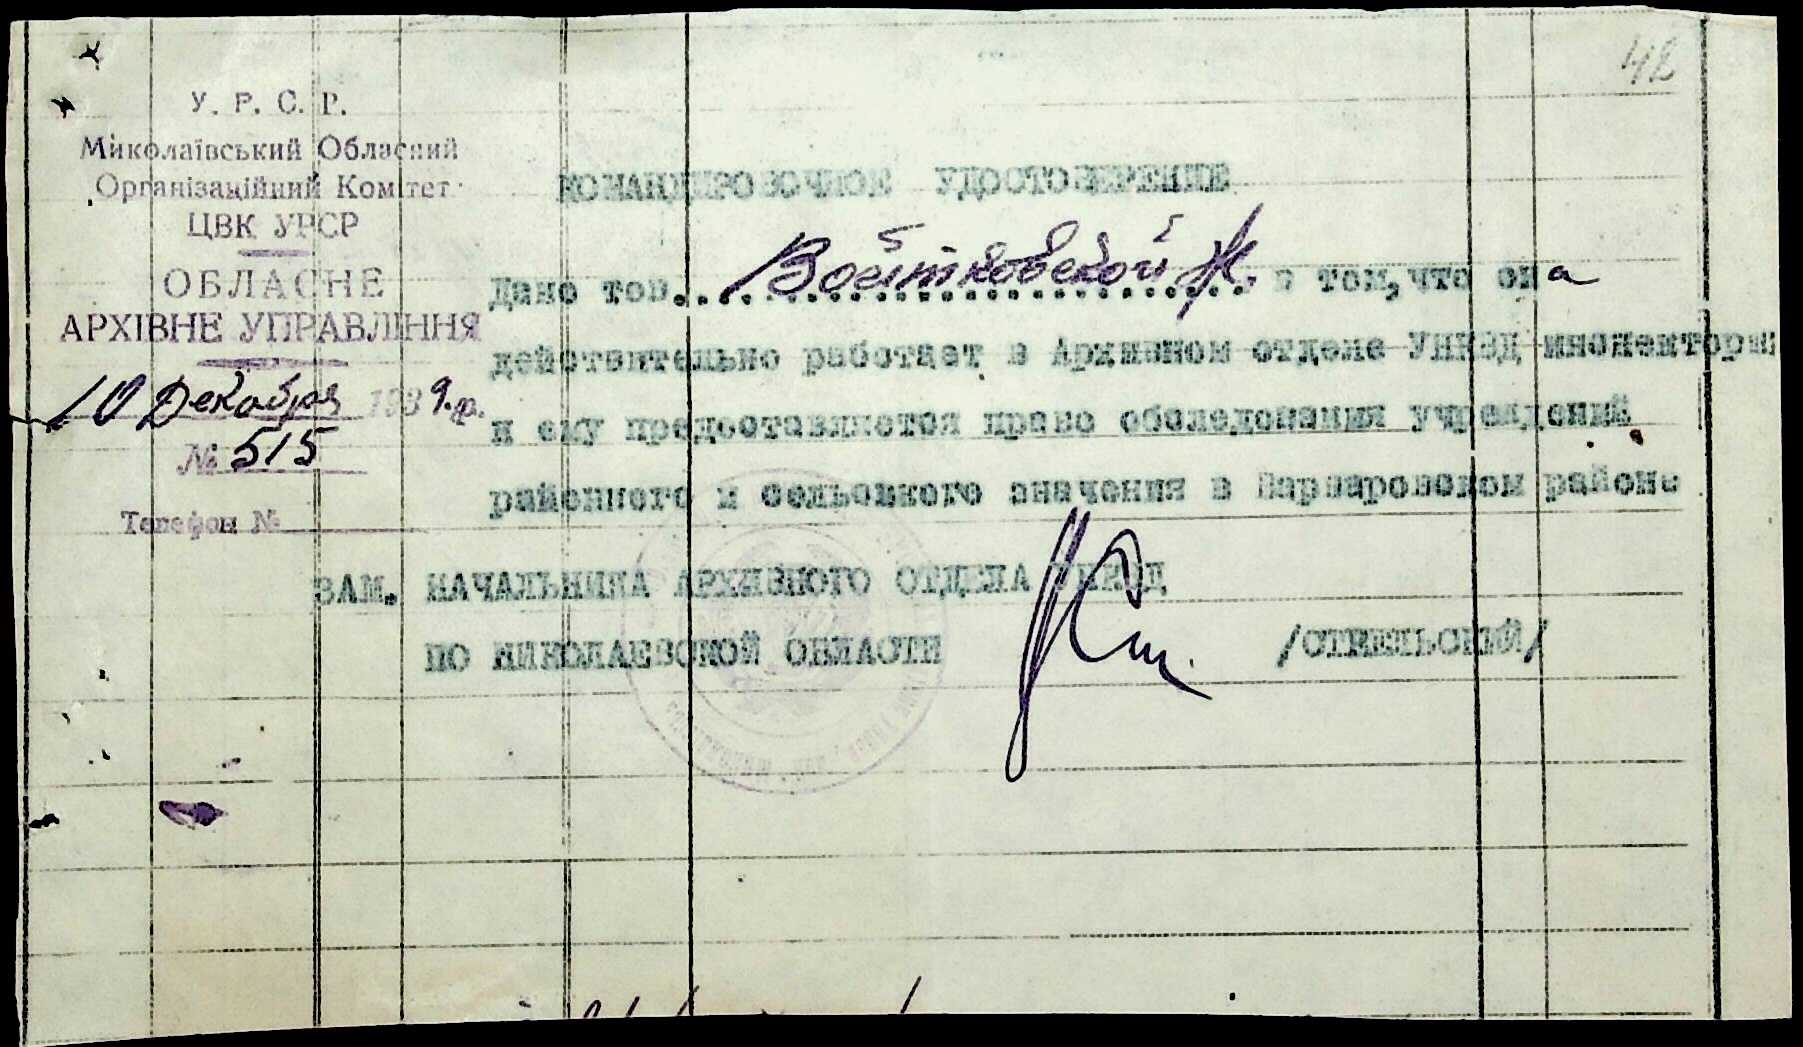 42
У. Р. С. Р.
Миколаївський Обласний
Організаційний Комітет
ЦВК УРСР
ОБЛАСНЕ
АРХІВНЕ УПРАВЛІННЯ
10 Декабря 1939 р.
№ 515
Телефон №
КОМАНДИРОВОЧНОЕ УДОСТОВЕРЕНИЕ
Дано тов. Войтковской Ж. в том, что она
действительно работает в Архивном отделе УНКВД инспектором
и ему предоставляется право обследования учреждений
районного и сельского значения в Варваровском районе
ЗАМ. НАЧАЛЬНИКА АРХИВНОГО ОТДЕЛА УНКВД
ПО НИКОЛАЕВСКОЙ ОБЛАСТИ /СТРЕЛЬСКИЙ/